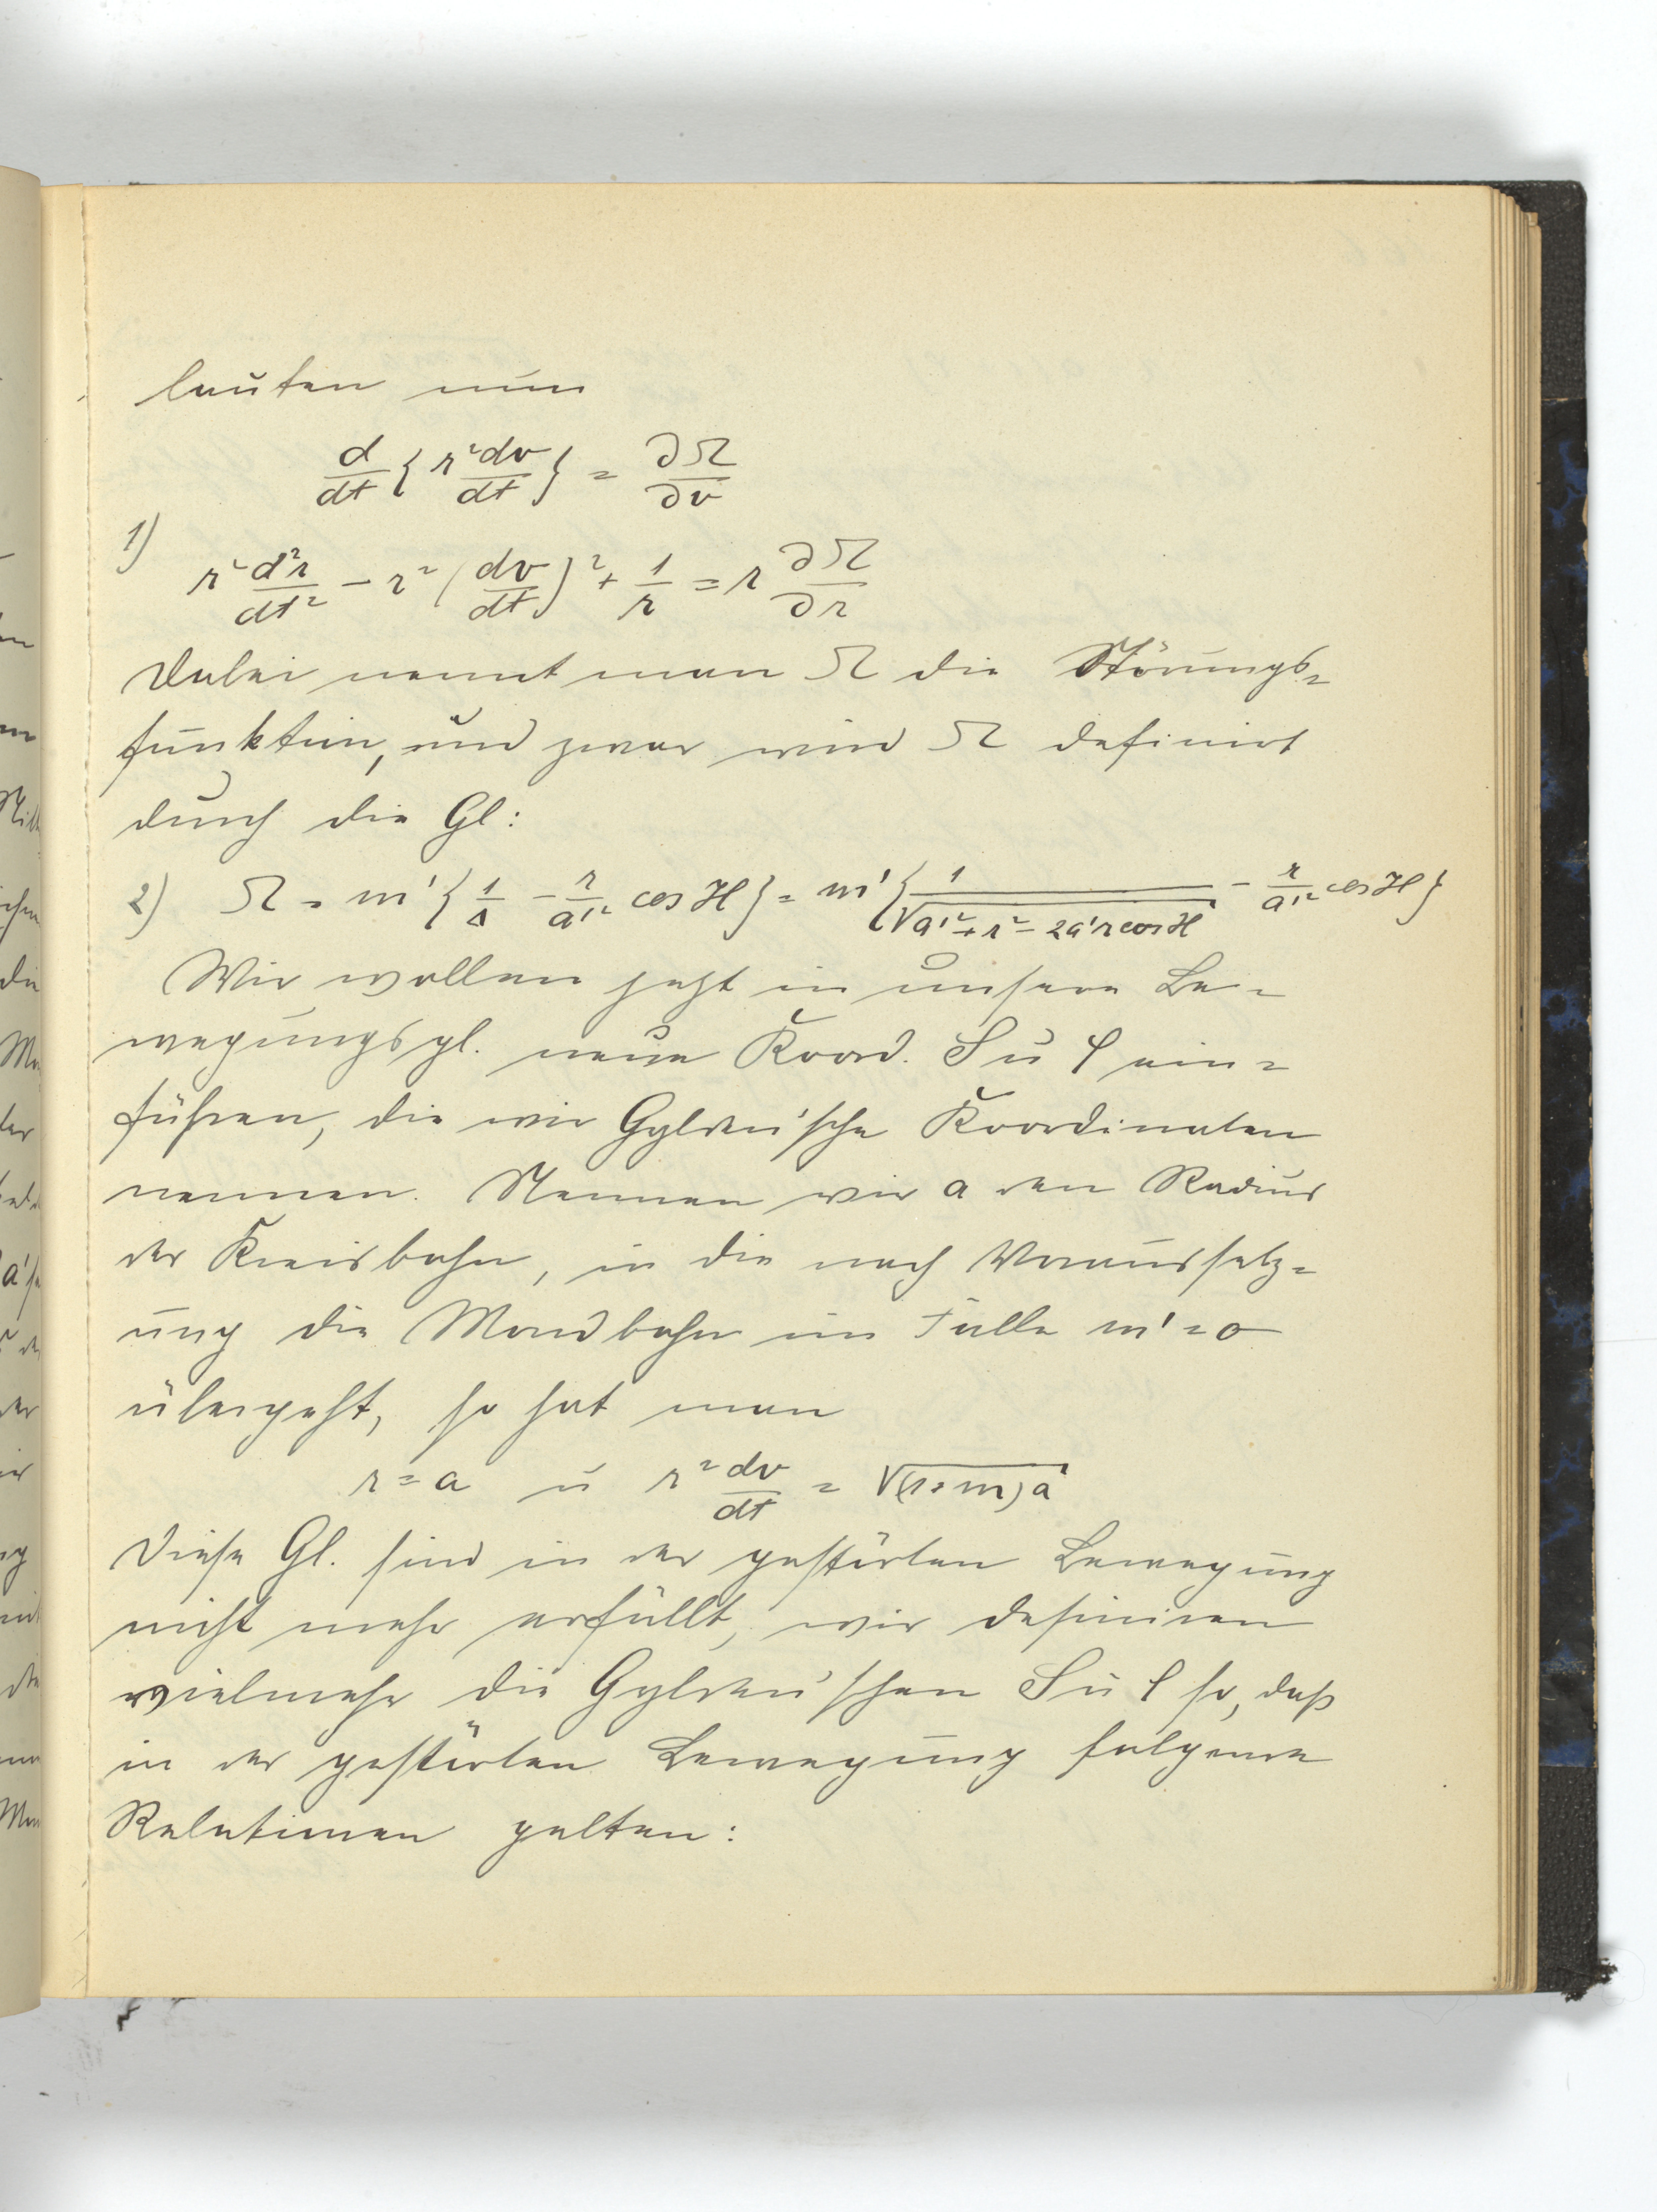 lauten nun
d/dt { r² dv/dt } = ∂Ω/∂v
1)
r² d²r/dt² − r² (dv/dt)² + 1/r = r ∂Ω/∂r
Dabei nennt man Ω die Störungs=
funktion, und zwar wird Ω definirt
durch die Gl:
2) Ω = m' { 1/Δ − r/a'² cos H } = m' { 1/√(a'² + r² − 2a'r cos H) − r/a'² cos H }
Wir wollen jetzt in unsere Be=
wegungsgl. neue Koord. S u ρ ein=
führen, die wir Gyldén'sche Koordinaten
nennen. Nennen wir a den Radius
der Kreisbahn, in die nach Voraussetz=
ung die Mondbahn im Falle m' = 0
übergeht, so hat man
r = a u r² dv/dt = √(1+m)a
Diese Gl. sind in der gestörten Bewegung
nicht mehr erfüllt, wir definiren
vielmehr die Gyldén'schen S u ρ so, daß
in der gestörten Bewegung folgende
Relationen gelten: